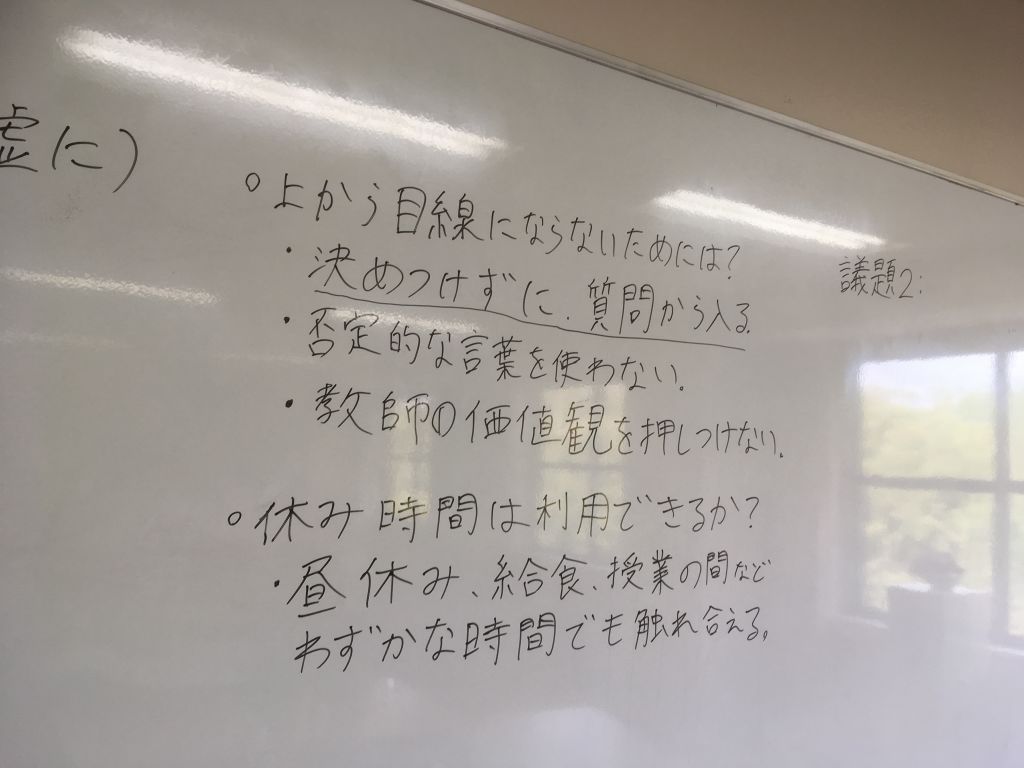 虚に)
○上から目線にならないためには?
・決めつけずに、質問から入る。
・否定的な言葉を使わない。
・教師の価値観を押しつけない。
○休み時間は利用できるか?
・昼休み、給食、授業の間など
わずかな時間でも触れ合える。
議題2: